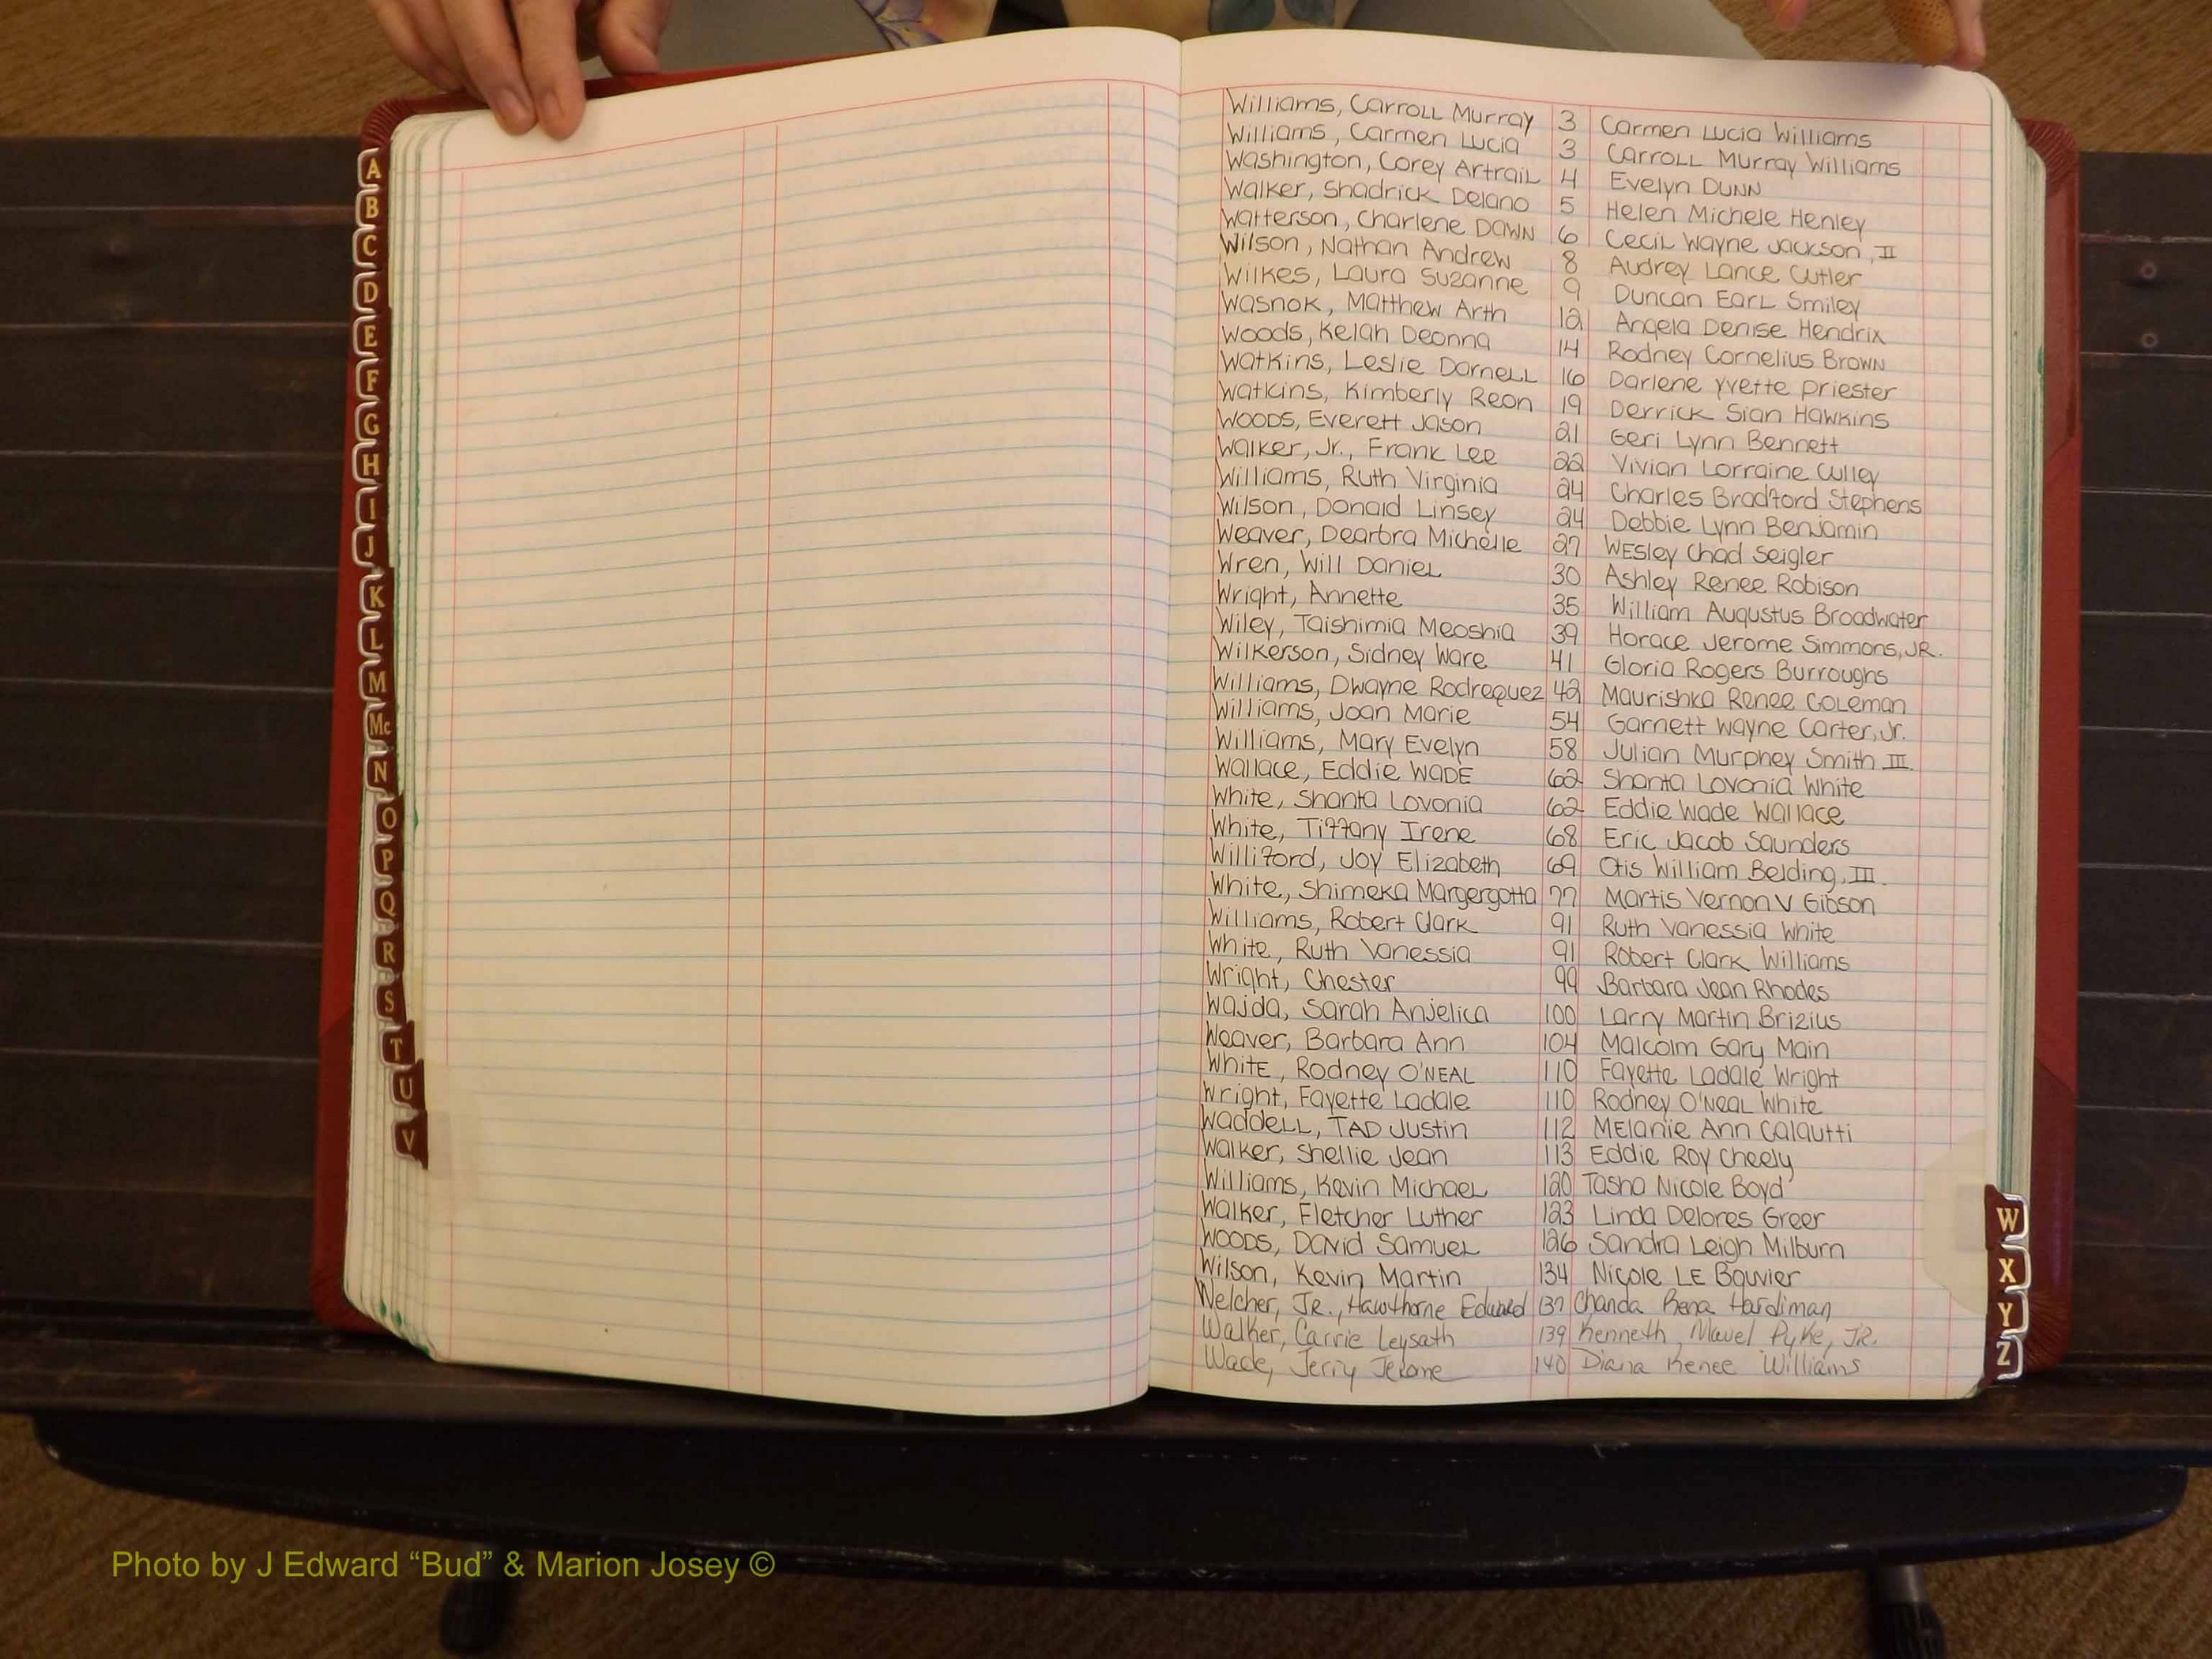 A
B
C
D
E
F
G
H
I
J
K
L
M
Mc
N
O
P
Q
R
S
T
U
V
Williams, Carroll Murray 3 Carmen Lucia Williams
Williams, Carmen Lucia 3 Carroll Murray Williams
Washington, Corey Artrail 4 Evelyn Dunn
Walker, Shadrick Delano 5 Helen Michele Henley
Watterson, Charlene Dawn 6 Cecil Wayne Jackson, II
Wilson, Nathan Andrew 8 Audrey Lance Cutler
Wilkes, Laura Suzanne 9 Duncan Earl Smiley
Wasnok, Matthew Arth 12 Angela Denise Hendrix
Woods, Kelah Deonna 14 Rodney Cornelius Brown
Watkins, Leslie Darnell 16 Darlene Yvette Priester
Watkins, Kimberly Reon 19 Derrick Sian Hawkins
Woods, Everett Jason 21 Geri Lynn Bennett
Walker, Jr., Frank Lee 22 Vivian Lorraine Culley
Williams, Ruth Virginia 24 Charles Bradford Stephens
Wilson, Donald Linsey 24 Debbie Lynn Benjamin
Weaver, Dearbra Michelle 27 Wesley Chad Seigler
Wren, Will Daniel 30 Ashley Renee Robison
Wright, Annette 35 William Augustus Broadwater
Wiley, Taishimia Meoshia 39 Horace Jerome Simmons, JR.
Wilkerson, Sidney Ware 41 Gloria Rogers Burroughs
Williams, Dwayne Rodrequez 42 Maurishka Renee Coleman
Williams, Joan Marie 54 Garnett Wayne Carter, Jr.
Williams, Mary Evelyn 58 Julian Murphey Smith III
Wallace, Eddie Wade 62 Shanta Lovonia White
White, Shanta Lovonia 62 Eddie Wade Wallace
White, Tiffany Irene 68 Eric Jacob Saunders
Williford, Joy Elizabeth 69 Otis William Belding, III
White, Shimeka Margergotta 77 Martis Vernon V Gibson
Williams, Robert Clark 91 Ruth Vanessia White
White, Ruth Vanessia 91 Robert Clark Williams
Wright, Chester 99 Barbara Jean Rhodes
Wajda, Sarah Anjelica 100 Larry Martin Brizius
Weaver, Barbara Ann 104 Malcolm Gary Main
White, Rodney O'Neal 110 Fayette Ladale Wright
Wright, Fayette Ladale 110 Rodney O'Neal White
Waddell, Tad Justin 112 Melanie Ann Calautti
Walker, Shellie Jean 113 Eddie Roy Cheely
Williams, Kevin Michael 120 Tasha Nicole Boyd
Walker, Fletcher Luther 123 Linda Delores Greer
Woods, David Samuel 126 Sandra Leigh Milburn
Wilson, Kevin Martin 134 Nicole Le Bouvier
Welcher, JR., Hawthorne Edward 137 Chanda Rena Hardiman
Walker, Carrie Leysath 139 Kenneth Pyke, JR.
Wade, Jerry Jerome 140 Diana Renee Williams
W
X
Y
Z
Photo by J Edward “Bud” & Marion Josey ©